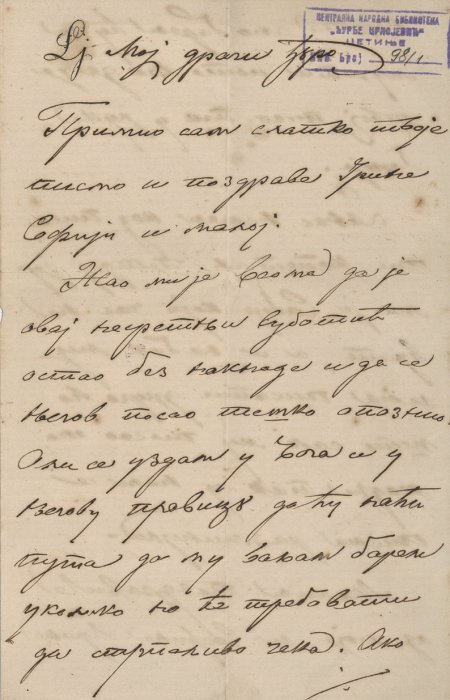 ЦЕНТРАЛНА НАРОДНА БИБЛИОТЕКА
„ЂУРЂЕ ЦРНОЈЕВИЋ"
ЦЕТИЊЕ
Инв. Број 98/1
Мој драги Ђуро
Примио сам слатко твоје
писмо и поздраве
Софији и малој.
Жао ми је веома да је
овај несретњи Суботић
остао без накнаде и да се
његов посао тешко опознио.
Али се уздам у Бога и у
његову правицу да ћу наћи
пута да му барем
уколико но ће требовати
да стрпљиво чека. Ако